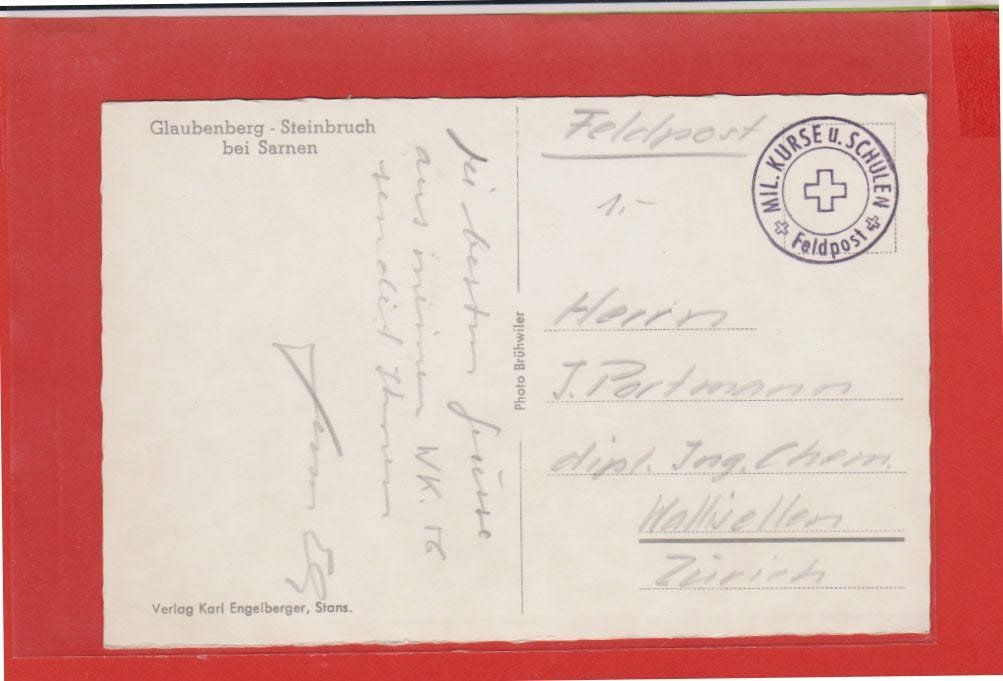 Glaubenberg - Steinbruch
bei Sarnen
Die besten Grüsse
aus meinem WK. 56
sendet Ihnen
Verlag Karl Engelberger, Stans.
Photo Brühwiler
Feldpost
MIL. KURSE U. SCHULEN
Feldpost
1.-
Herrn
J. Portmann
dipl. Ing. Chem.
Wallisellen
Zürich